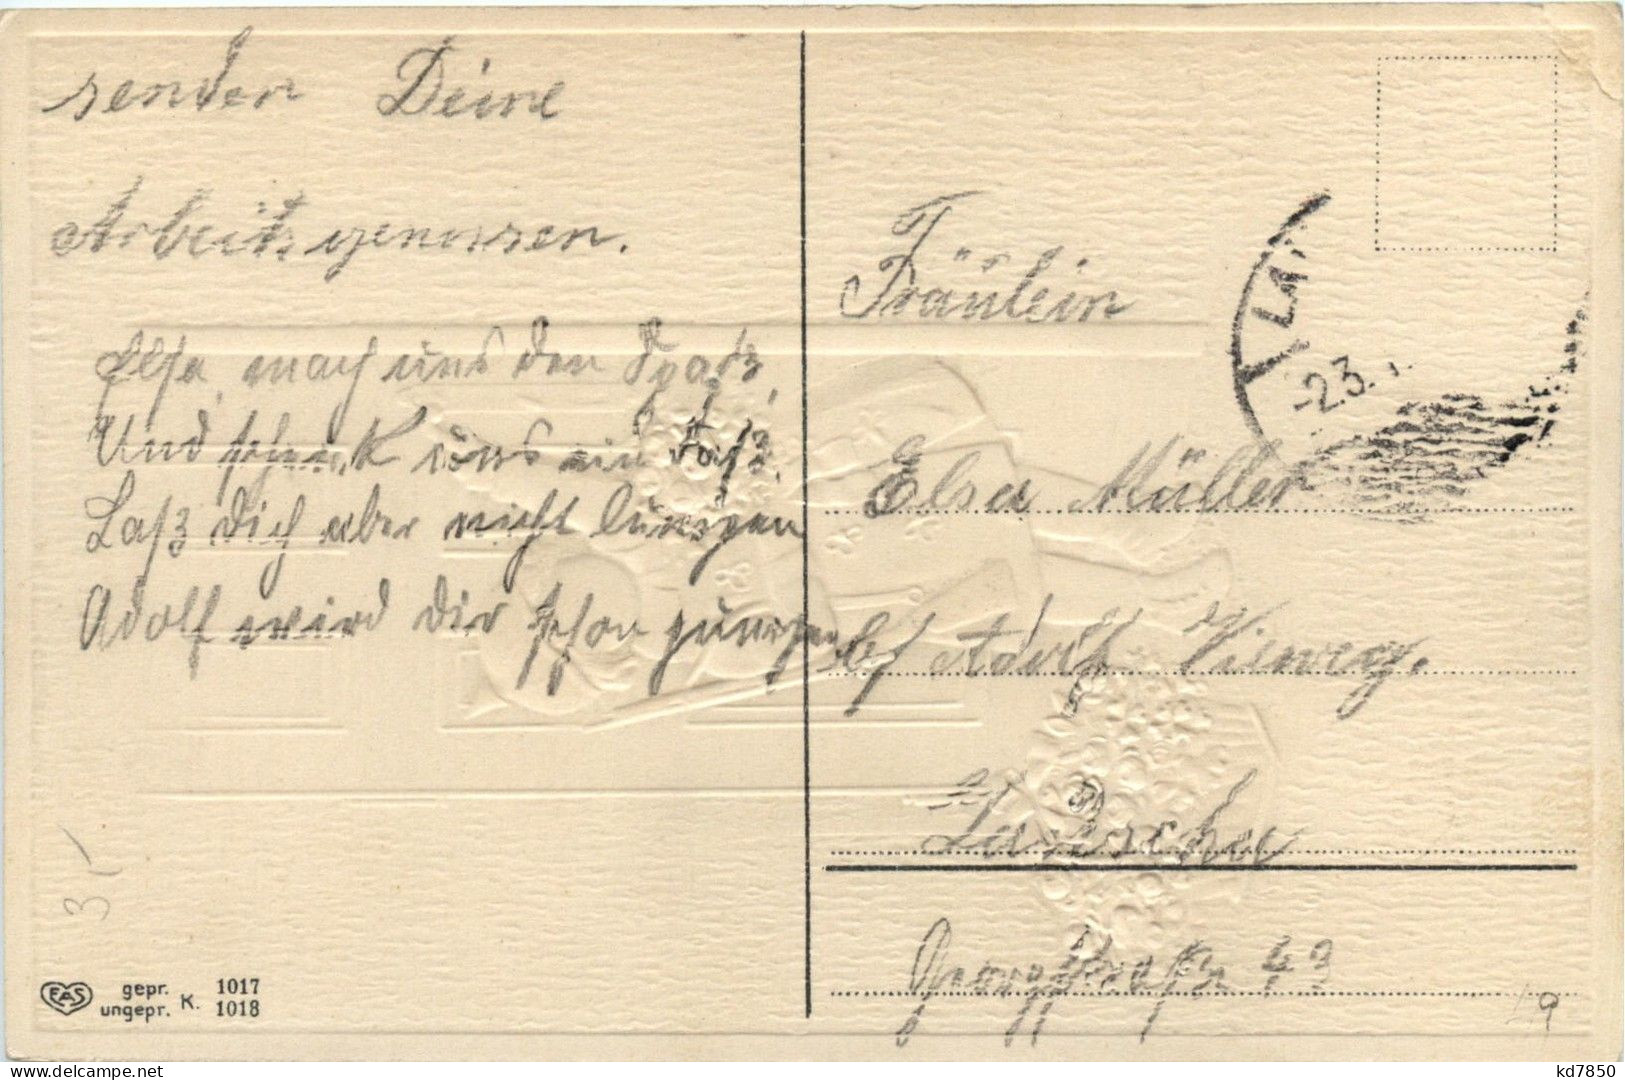 senden Deine
Arbeitsgenossen.
Elsa, mach uns den Spaß,
Und schenk uns ein Faß.
Laß dich aber nicht lumpen
Adolf wird dir schon pumpen
Fräulein
Elsa Müller
b/ Adolf Vieweg.
Lauscha
43
LA
-2.3.
3,-
EAS
gepr. 1017
ungepr. K. 1018
49
kd7850